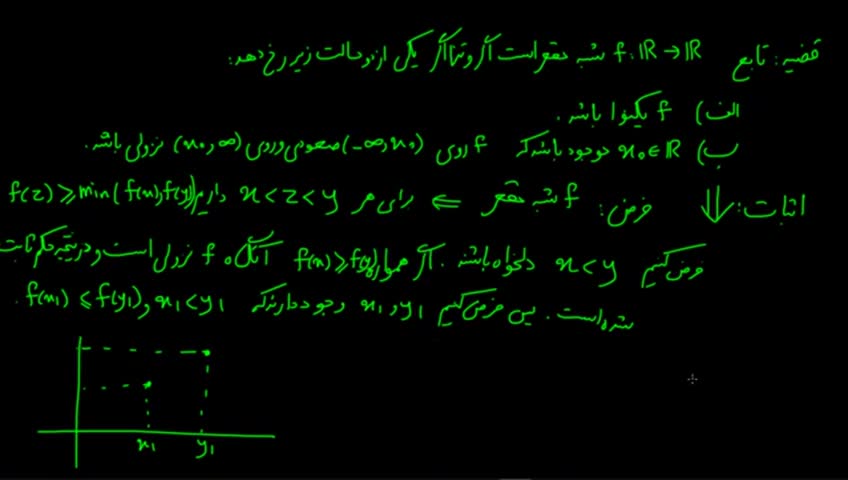 قضیه: تابع f: ℝ → ℝ شبه مقعر است اگر و تنها اگر یکی از دو حالت زیر رخ دهد:
الف) f یکنوا باشد.
ب) x₀ ∈ ℝ موجود باشد که f روی (-∞, x₀) صعودی و روی (x₀, ∞) نزولی باشد.
اثبات: ⇓ فرض: f شبه مقعر ⇐ برای هر x < z < y داریم f(z) ≥ min(f(x), f(y))
فرض کنیم x < y دلخواه باشند. اگر همواره f(x) ≥ f(y) آنگاه f نزولی است و در نتیجه حکم ثابت
شده است. پس فرض کنیم x₁ و y₁ وجود دارند که x₁ < y₁ و f(x₁) ≤ f(y₁).
x₁ y₁